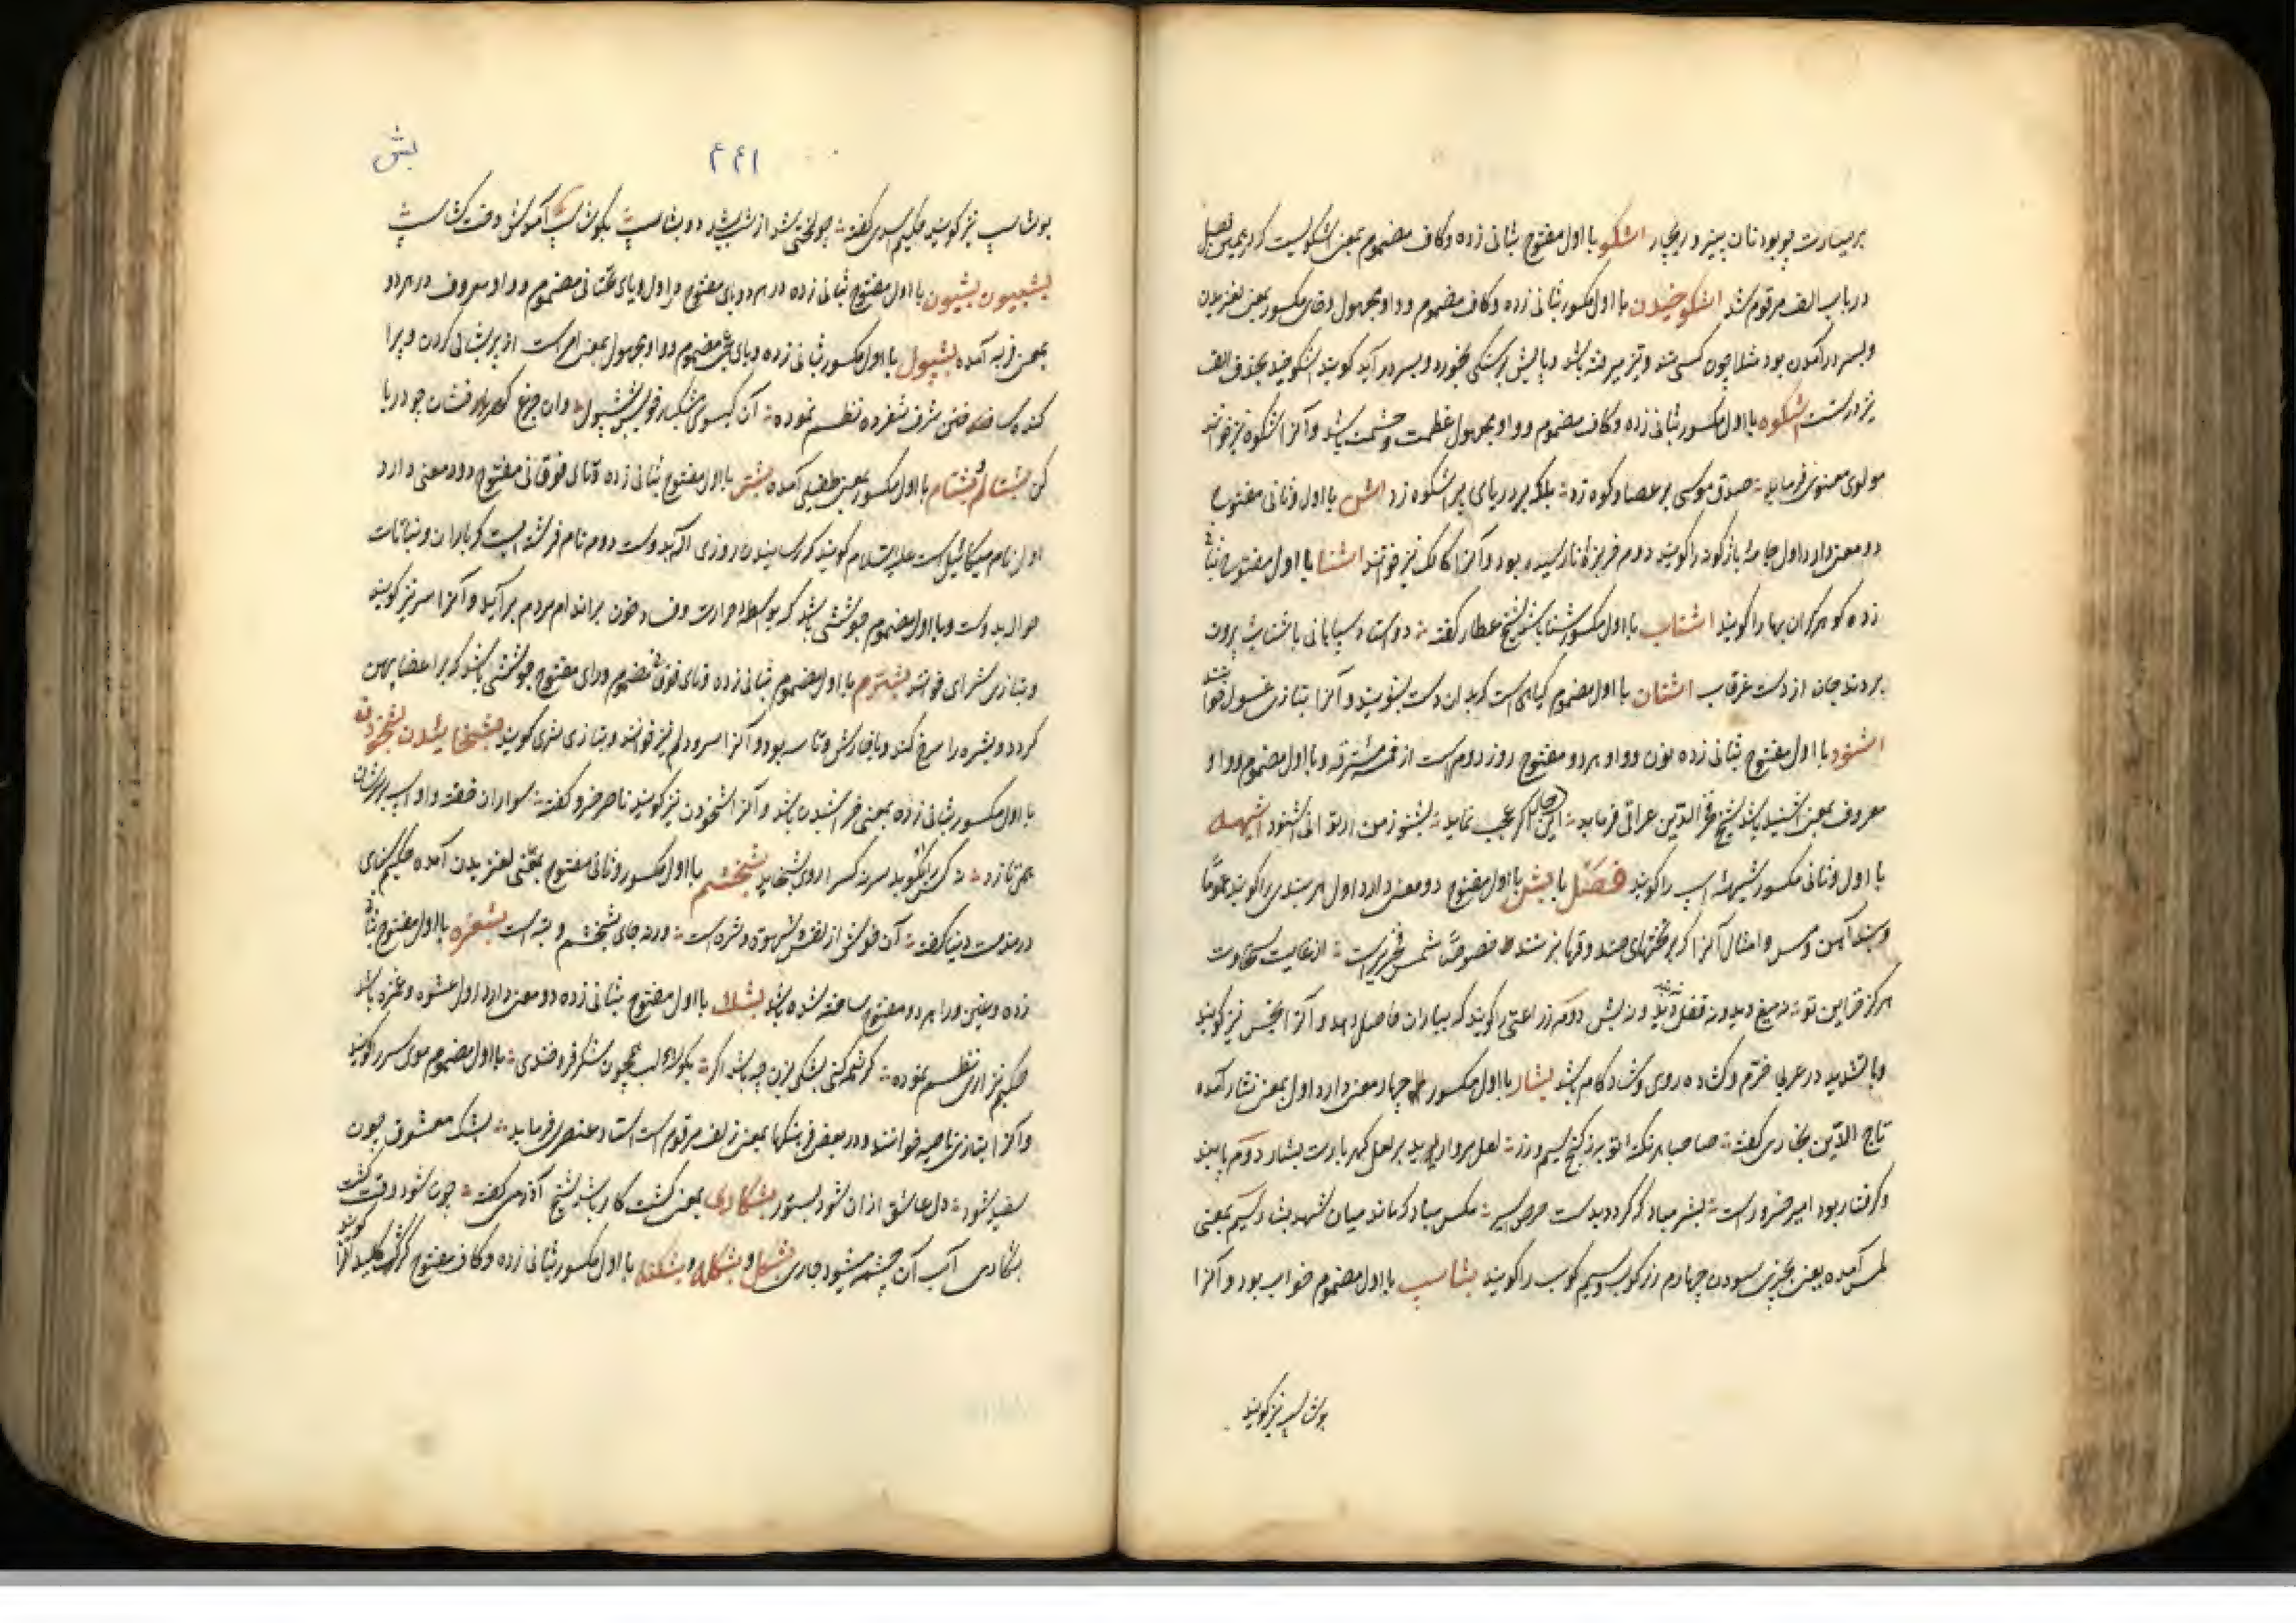 بر میسازت چو بود نان پنیر و ریچار اشکو با اول مفتوح بثانی زده و کاف مضموم بمعنی اشکوبست که در همین فصل
در باب الف مرقوم شد اشکوخیدن با اول مکسور بثانی زده و کاف مضموم و واو مجهول و خای مکسور بمعنی لغزیدن
و بسر در آمدن بود مثلا چون کسی تند و تیز میرفته باشد و پایش بر سنگی بخورد و بسر در آید گویند اشکوخید بحذف الف
نیز درست اشکوه با اول مکسور بثانی زده و کاف مضموم و واو مجهول عظمت و حشمت باشد و آنرا شکوه نیز خوانند
مولوی معنوی فرماید صدق موسی بر عصا و کوه زد بلکه بر دریای پر اشکوه زد اشن با اول و ثانی مفتوح
دو معنی دارد اول جامهٔ باژگونه را گویند دوم خربزهٔ نارسیده بود و آنرا کالک نیز خوانند اشنا با اول مفتوح بثانی
زده گوهر گران بها را گویند اشناب با اول مکسور شنا باشد شیخ عطار گفته دو استاد سپاهانی باشناب برون
بردند جان از دست غرقاب اشنان با اول مضموم گیاهی است که بدان دست بشویند و آنرا بتازی غسول خوانند
اشنود با اول مفتوح بثانی زده نون و واو هر دو مفتوح روز دوم است از خمسه مسترقه و با اول مضموم و واو
معروف بمعنی شنید باشد شیخ فخر الدین عراقی فرماید این حال گر عجب نماید بشنو ز من ار توانی اشنود اشیهه
با اول و ثانی مکسور شیهه اسب را گویند فصل با بش با اول مفتوح دو معنی دارد اول هر بندی را گویند عموما
و بند آهن و مس و امثال آنرا که بر تختهای صندوقها بزنند خصوصا شمس فخری راست از غایت سخاوت
هرگز خزاین تو نه میخ دید و نه قفل نه بند دید و نه بش دوم زراعتی گویند که بباران حاصل دهد و آنرا بخس نیز گویند
و با تشدید در عربی خرم و گشاده روی و شادکام باشد بشار با اول مکسور چهار معنی دارد اول بمعنی نثار آمده
تاج الدین بخاری گفته صاحبا هر نکته تو بر ز گنج سیم و زر لعل مروارید بر لعل گهر بارت بشار دوم پابند
و گرفتار بود امیر خسرو راست بشر مباد که گردد بدست حرص اسیر مگس مباد که ماند میان شهد بشار سیم بمعنی
لمس آمده یعنی بچیزی بسودن چهارم زر کوب و سیم کوب را گویند بشاسپ با اول مضموم خواب بود و آنرا
بوشاسپ نیز گویند
بش
۴۴۱
بوشاسپ نیز گویند حکیم اسدی گفته چو لختی شد از شب
بشبیون بشیون با اول مفتوح بثانی زده در هر دو بای مفتوح در اول و یای تحتانی مضموم و واو معروف در هر دو
بمعنی فربه آمده بشپول با اول مکسور بثانی زده و بای مضموم و واو مجهول بمعنی امر است از پریشانی کردن و پرا
کنده ساختن شرف شفروه نظم نموده آن گیسوی مشکبار خویش بشپول وان جزع گهر فشان چو دریا
کن بشتالم و بشتام با اول مکسور بمعنی طفیلی آمده بشتر با اول مفتوح بثانی زده و تای فوقانی مفتوح دو معنی دارد
اول نام میکائیل است علیه السلام گویند که رسانیدن روزی اکه بدوست دوم نام فرشته ایست که باران و نباتات
حواله بدوست و با اول مضموم جوششی باشد که بواسطه حرارت و خون بر اندام مردم بر آید و آنرا سر نیز گویند
و بتازی شرای خوانند بشترم با اول مضموم بثانی زده و تای فوقانی مضموم و رای مفتوح جوششی باشد که بر اعضا پهن
گردد و بشره را سرخ کند و با خارش و تاسه بود و آنرا نیز خوانند و بتازی شری گویند بشخائیدن بشخودن
با اول مکسور بثانی زده بمعنی خراشیدن باشد و آنرا شخودن نیز گویند ناصر خسرو گفته سواران خفته و او اسب بر سرشان
همی تازد
بشخشم با اول مکسور و ثانی مفتوح بمعنی لغزیدن آمده حکیم سنائی
در مذمت دنیا گفته آن خوشی از نفس شهوت و شره است ورنه جای بشخشم و تبه است بشغره با اول مفتوح بثانی
زده و غین و را هر دو مفتوح ساخته شده باشد بشک با اول مفتوح بثانی زده دو معنی دارد اول عشوه و غمزه باشد
حکیم نزاری نظم نموده کرشمه کنی بشکی بزن چه باشد اگر بگو لب همچون شکر فرو خندی با اول مضموم موی سر را گویند
و آنرا بتازی ناصیه خوانند و در بعضی فرهنگها بمعنی زلف مرقوم است استاد عنصری فرماید بشک معشوق چون
سفید شود دل عاشق ازان شود بستوه بشکاری بمعنی کشت کار باشد شیخ آذری گفته چون شود وقت کشت
بشکاری آب آن چشمه میشود جاری بشکل و بشکله و بشکنه با اول مکسور بثانی زده و کاف مفتوح کژک کلید را گویند